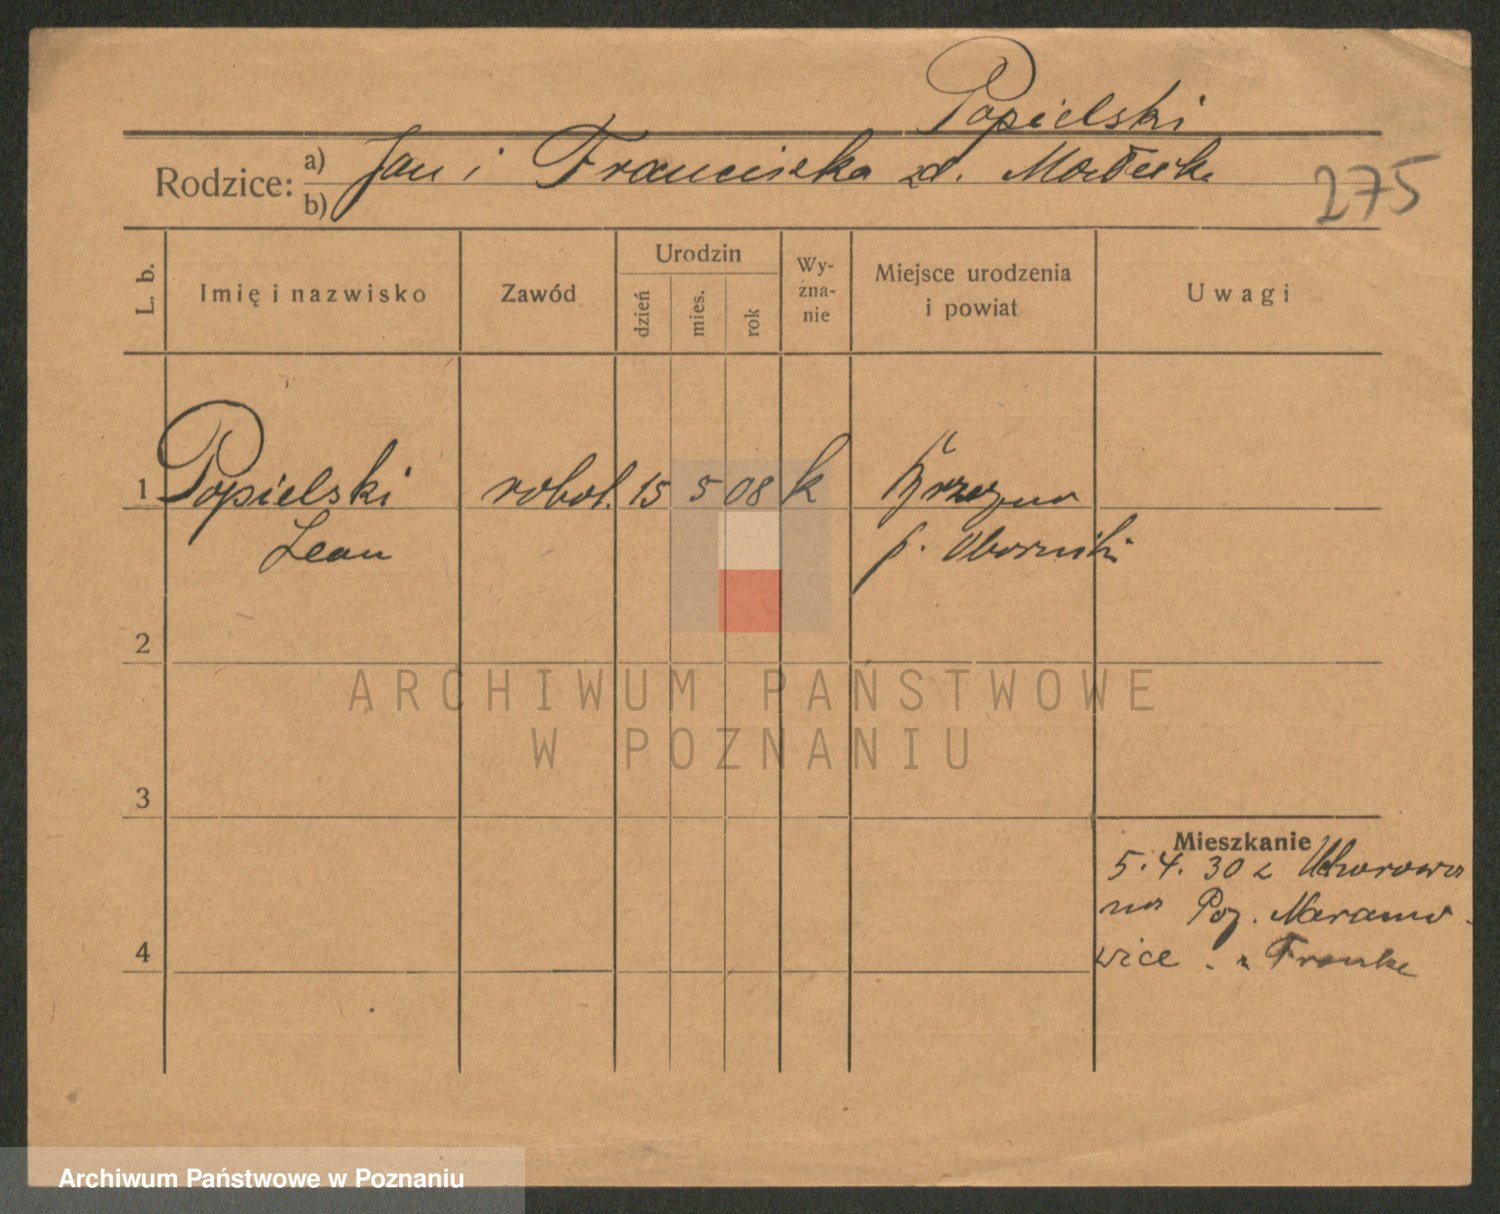 Popielski
Rodzice: a) Jan i Franciszka zd.
b)
275
L. b.
Imię i nazwisko
Zawód
Urodzin
dzień
mies.
rok
Wy-
zna-
nie
Miejsce urodzenia
i powiat
Uwagi
1 Popielski robot. 15 5 08 k
Leon p. Oborniki
2
3
4
Mieszkanie
5.4.30 z Uchorowa
na Poz. Naramo-
wice
ARCHIWUM PAŃSTWOWE
W POZNANIU
Archiwum Państwowe w Poznaniu